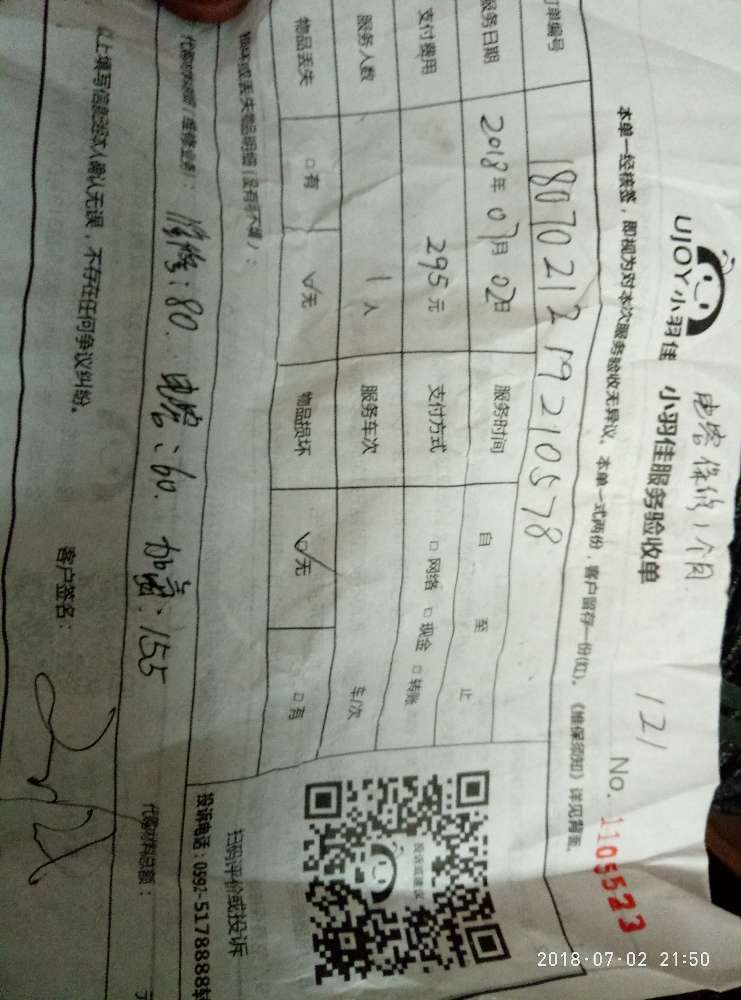 电容保修1个月
121
UJOY小羽佳 小羽佳服务验收单 No. 1105523
本单一经核签，即视为对本次服务验收无异议。本单一式两份，客户留存一份(红)。《维保须知》详见背面。
订单编号 180702121921057​8
服务日期 2018年07月02日 服务时间 自 至 止
支付费用 295元 支付方式 □网络 □现金 □转账
服务人数 1人 服务车次 车/次
物品丢失 □有 ☑无 物品损坏 ☑无 □有
损坏或丢失物品明细(没有可不填)：
代购材料明细(维修业务)： 维修：80. 电容：60. 加氟：155 代购材料总额：
以上填写信息经本人确认无误，不存在任何争议纠纷。
客户签名：
投诉或建议
扫码评价或投诉
投诉电话：0592-5178888转
2018-07-02 21:50